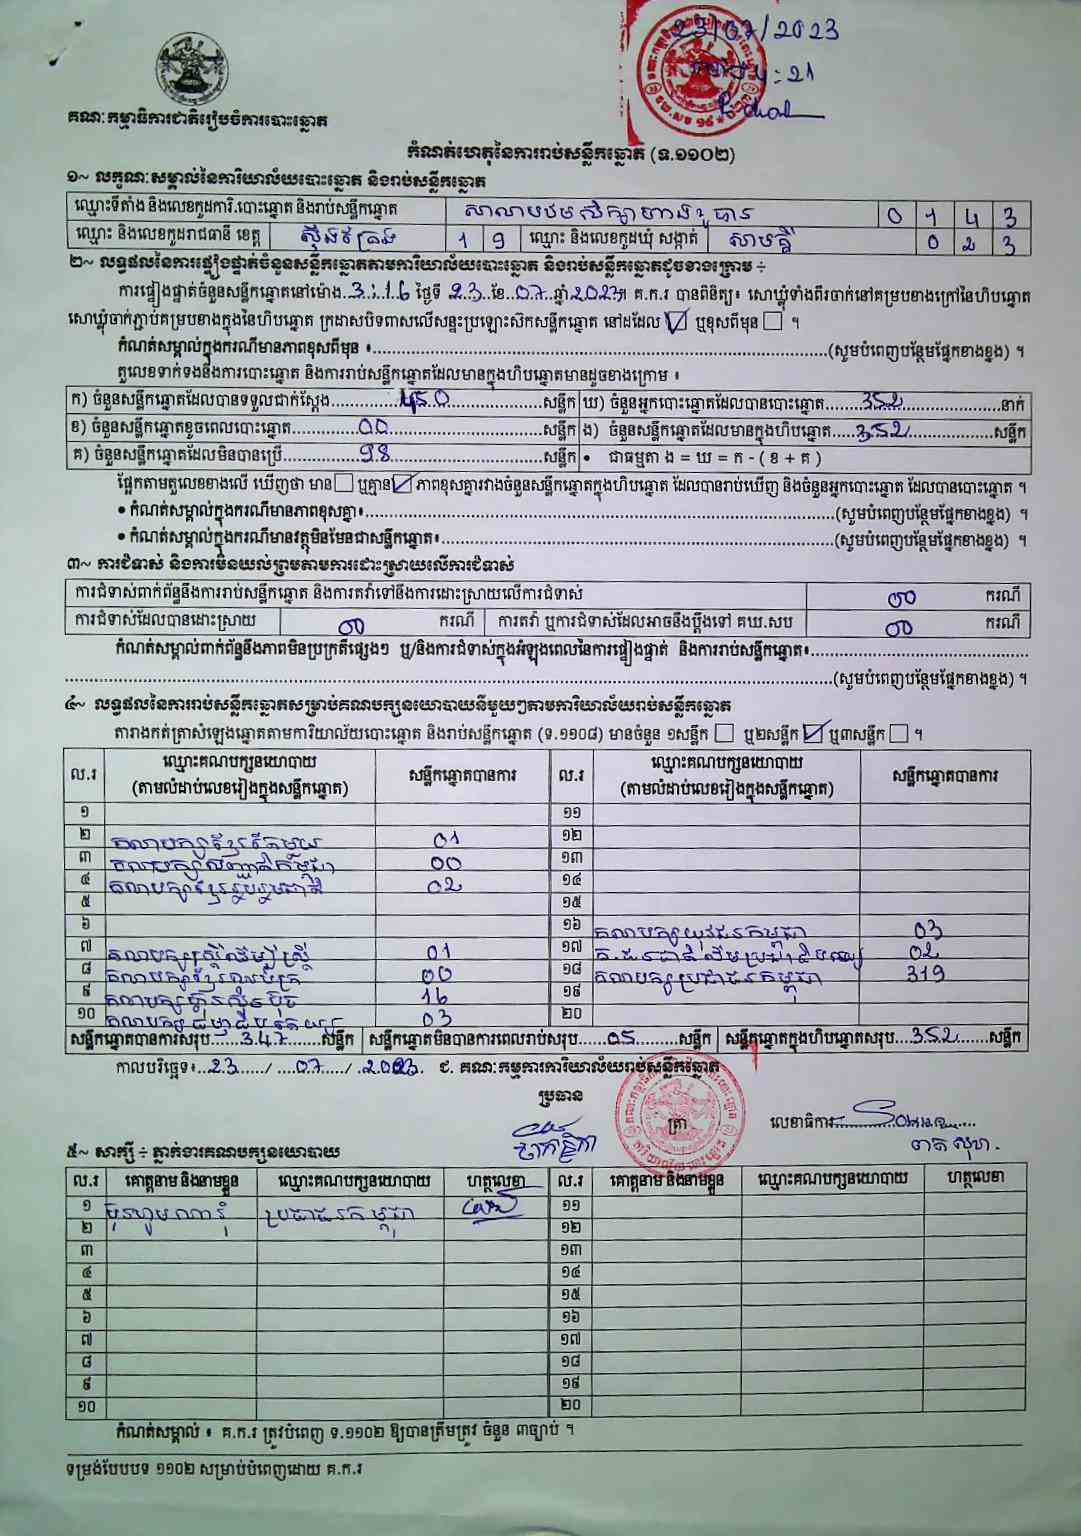 23/07/2023
គណៈកម្មាធិការជាតិរៀបចំការបោះឆ្នោត
កំណត់ហេតុនៃការរាប់សន្លឹកឆ្នោត (ទ.១១០២)
១~ លក្ខណៈសម្គាល់នៃការិយាល័យបោះឆ្នោត និងរាប់សន្លឹកឆ្នោត
ឈ្មោះទីតាំង និងលេខកូដការិ.បោះឆ្នោត និងរាប់សន្លឹកឆ្នោត សាលាបឋមសិក្សា 0 1 4 3
ឈ្មោះ និងលេខកូដរាជធានី ខេត្ត ស្ទឹងត្រែង 1 9 ឈ្មោះ និងលេខកូដឃុំ សង្កាត់ សាមគ្គី 0 2 3
២~ លទ្ធផលនៃការផ្ទៀងផ្ទាត់ចំនួនសន្លឹកឆ្នោតតាមការិយាល័យបោះឆ្នោត និងរាប់សន្លឹកឆ្នោតដូចខាងក្រោម ÷
ការផ្ទៀងផ្ទាត់ចំនួនសន្លឹកឆ្នោតនៅម៉ោង..3:16 ថ្ងៃទី 23..ខែ..07..ឆ្នាំ 2023។ គ.ក.រ បានពិនិត្យ៖ សោឃ្លុំទាំងពីរចាក់នៅគម្របខាងក្រៅនៃហិបឆ្នោត
សោឃ្លុំចាក់ភ្ជាប់គម្របខាងក្នុងនៃហិបឆ្នោត ក្រដាសបិទពាសលើសន្ទះប្រឡោះស៊កសន្លឹកឆ្នោត នៅដដែល ☑ ឬខុសពីមុន ☐ ។
កំណត់សម្គាល់ក្នុងករណីមានភាពខុសពីមុន ៖.....(សូមបំពេញបន្ថែមផ្នែកខាងខ្នង) ។
តួលេខទាក់ទងនឹងការបោះឆ្នោត និងការរាប់សន្លឹកឆ្នោតដែលមានក្នុងហិបឆ្នោតមានដូចខាងក្រោម ៖
ក) ចំនួនសន្លឹកឆ្នោតដែលបានទទួលជាក់ស្តែង.....450.....សន្លឹក ឃ) ចំនួនអ្នកបោះឆ្នោតដែលបានបោះឆ្នោត.....352.....នាក់
ខ) ចំនួនសន្លឹកឆ្នោតខូចពេលបោះឆ្នោត.....00.....សន្លឹក ង) ចំនួនសន្លឹកឆ្នោតដែលមានក្នុងហិបឆ្នោត.....352.....សន្លឹក
គ) ចំនួនសន្លឹកឆ្នោតដែលមិនបានប្រើ.....98.....សន្លឹក • ជាធម្មតា ង = ឃ = ក - ( ខ + គ )
ផ្អែកតាមតួលេខខាងលើ ឃើញថា មាន ☐ ឬគ្មាន ☑ ភាពខុសគ្នារវាងចំនួនសន្លឹកឆ្នោតក្នុងហិបឆ្នោត ដែលបានរាប់ឃើញ និងចំនួនអ្នកបោះឆ្នោត ដែលបានបោះឆ្នោត ។
• កំណត់សម្គាល់ក្នុងករណីមានភាពខុសគ្នា៖.....(សូមបំពេញបន្ថែមផ្នែកខាងខ្នង) ។
• កំណត់សម្គាល់ក្នុងករណីមានវត្ថុមិនមែនជាសន្លឹកឆ្នោត៖.....(សូមបំពេញបន្ថែមផ្នែកខាងខ្នង) ។
៣~ ការជំទាស់ និងការមិនយល់ព្រមតាមការដោះស្រាយលើការជំទាស់
ការជំទាស់ពាក់ព័ន្ធនឹងការរាប់សន្លឹកឆ្នោត និងការតវ៉ាទៅនឹងការដោះស្រាយលើការជំទាស់ 00 ករណី
ការជំទាស់ដែលបានដោះស្រាយ 00 ករណី ការតវ៉ា ឬការជំទាស់ដែលអាចនឹងប្តឹងទៅ គឃ.សប 00 ករណី
កំណត់សម្គាល់ពាក់ព័ន្ធនឹងភាពមិនប្រក្រតីផ្សេងៗ ឬ/និងការជំទាស់ក្នុងអំឡុងពេលនៃការផ្ទៀងផ្ទាត់ និងការរាប់សន្លឹកឆ្នោត៖.....
.....(សូមបំពេញបន្ថែមផ្នែកខាងខ្នង) ។
៤~ លទ្ធផលនៃការរាប់សន្លឹកឆ្នោតសម្រាប់គណបក្សនយោបាយនីមួយៗតាមការិយាល័យរាប់សន្លឹកឆ្នោត
តារាងកត់ត្រាសំឡេងឆ្នោតតាមការិយាល័យបោះឆ្នោត និងរាប់សន្លឹកឆ្នោត (ទ.១១០៨) មានចំនួន ១សន្លឹក ☐ ឬ២សន្លឹក ☑ ឬ៣សន្លឹក ☐ ។
ល.រ ឈ្មោះគណបក្សនយោបាយ (តាមលំដាប់លេខរៀងក្នុងសន្លឹកឆ្នោត) សន្លឹកឆ្នោតបានការ ល.រ ឈ្មោះគណបក្សនយោបាយ (តាមលំដាប់លេខរៀងក្នុងសន្លឹកឆ្នោត) សន្លឹកឆ្នោតបានការ
១ ១១
២ គណបក្សខ្មែរតែមួយ 01 ១២
៣ គណបក្សសញ្ជាតិកម្ពុជា 00 ១៣
៤ គណបក្សខ្មែររួបរួមជាតិ 02 ១៤
៥ ១៥
៦ ១៦ គណបក្សយុវជនកម្ពុជា 03
៧ គណបក្សស្ត្រីដើម្បីស្ត្រី 01 ១៧ 02
៨ 00 ១៨ គណបក្សប្រជាជនកម្ពុជា 319
៩ 16 ១៩
១០ គណបក្សធម្មាធិបតេយ្យ 03 ២០
សន្លឹកឆ្នោតបានការសរុប.....347.....សន្លឹក សន្លឹកឆ្នោតមិនបានការពេលរាប់សរុប.....05.....សន្លឹក សន្លឹកឆ្នោតក្នុងហិបឆ្នោតសរុប...352.....សន្លឹក
កាលបរិច្ឆេទ៖..23..../....07..../..2023. ជ. គណៈកម្មការការិយាល័យរាប់សន្លឹកឆ្នោត
ប្រធាន
ត្រា លេខាធិការ
៥~ សាក្សី ÷ ភ្នាក់ងារគណបក្សនយោបាយ
ល.រ គោត្តនាម និងនាមខ្លួន ឈ្មោះគណបក្សនយោបាយ ហត្ថលេខា ល.រ គោត្តនាម និងនាមខ្លួន ឈ្មោះគណបក្សនយោបាយ ហត្ថលេខា
១ ប្រជាជនកម្ពុជា ១១
២ ១២
៣ ១៣
៤ ១៤
៥ ១៥
៦ ១៦
៧ ១៧
៨ ១៨
៩ ១៩
១០ ២០
កំណត់សម្គាល់ ៖ គ.ក.រ ត្រូវបំពេញ ទ.១១០២ ឱ្យបានត្រឹមត្រូវ ចំនួន ៣ច្បាប់ ។
ទម្រង់បែបបទ ១១០២ សម្រាប់បំពេញដោយ គ.ក.រ